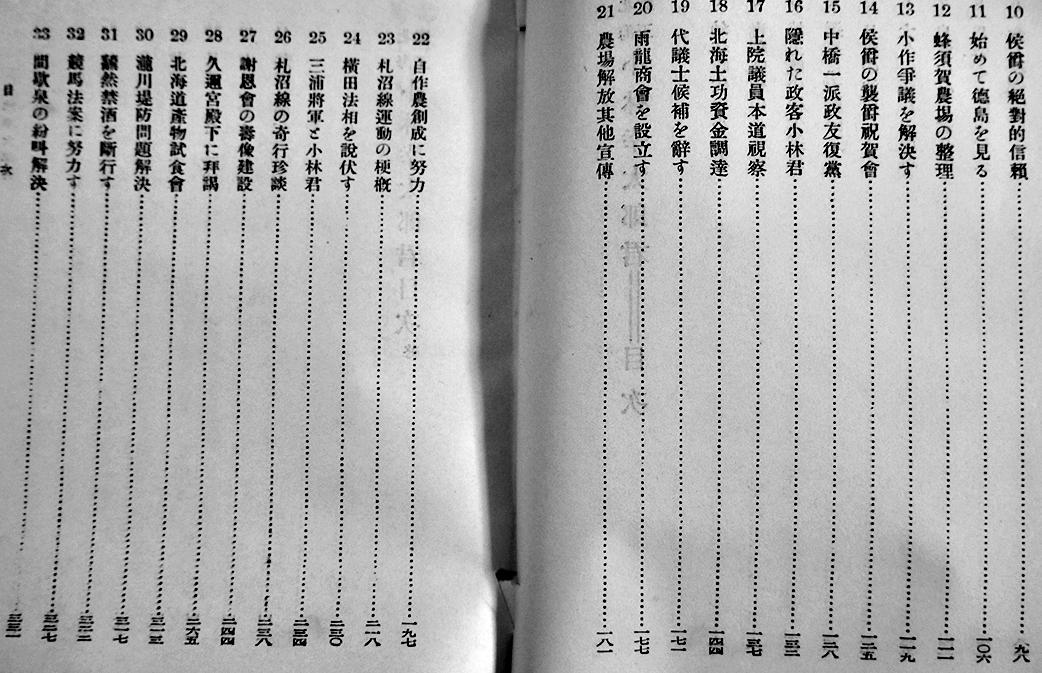 10 侯爵の絕對的信賴……九八
11 始めて德島を見る……一〇六
12 蜂須賀農場の整理……一一一
13 小作爭議を解決す……一一九
14 侯爵の襲爵祝賀會……一二五
15 中橋一派政友復黨……一二八
16 隱れた政客小林君……一三二
17 上院議員本道視察……一三七
18 北海土功資金調達……一四四
19 代議士候補を辭す……一七一
20 雨龍商會を設立す……一七七
21 農場解放其他宣傳……一八一
22 自作農創成に努力……一九七
23 札沼線運動の梗槪……二一八
24 橫田法相を說伏す……二三〇
25 三浦將軍と小林君……二三四
26 札沼線の奇行珍談……二三八
27 謝恩會の壽像建設
28 久邇宮殿下に拜謁
29 北海道產物試食會
30 瀧川堤防問題解決
31 驀然禁酒を斷行す
32 競馬法案に努力す
33 間歇泉の紛糾解決
目次